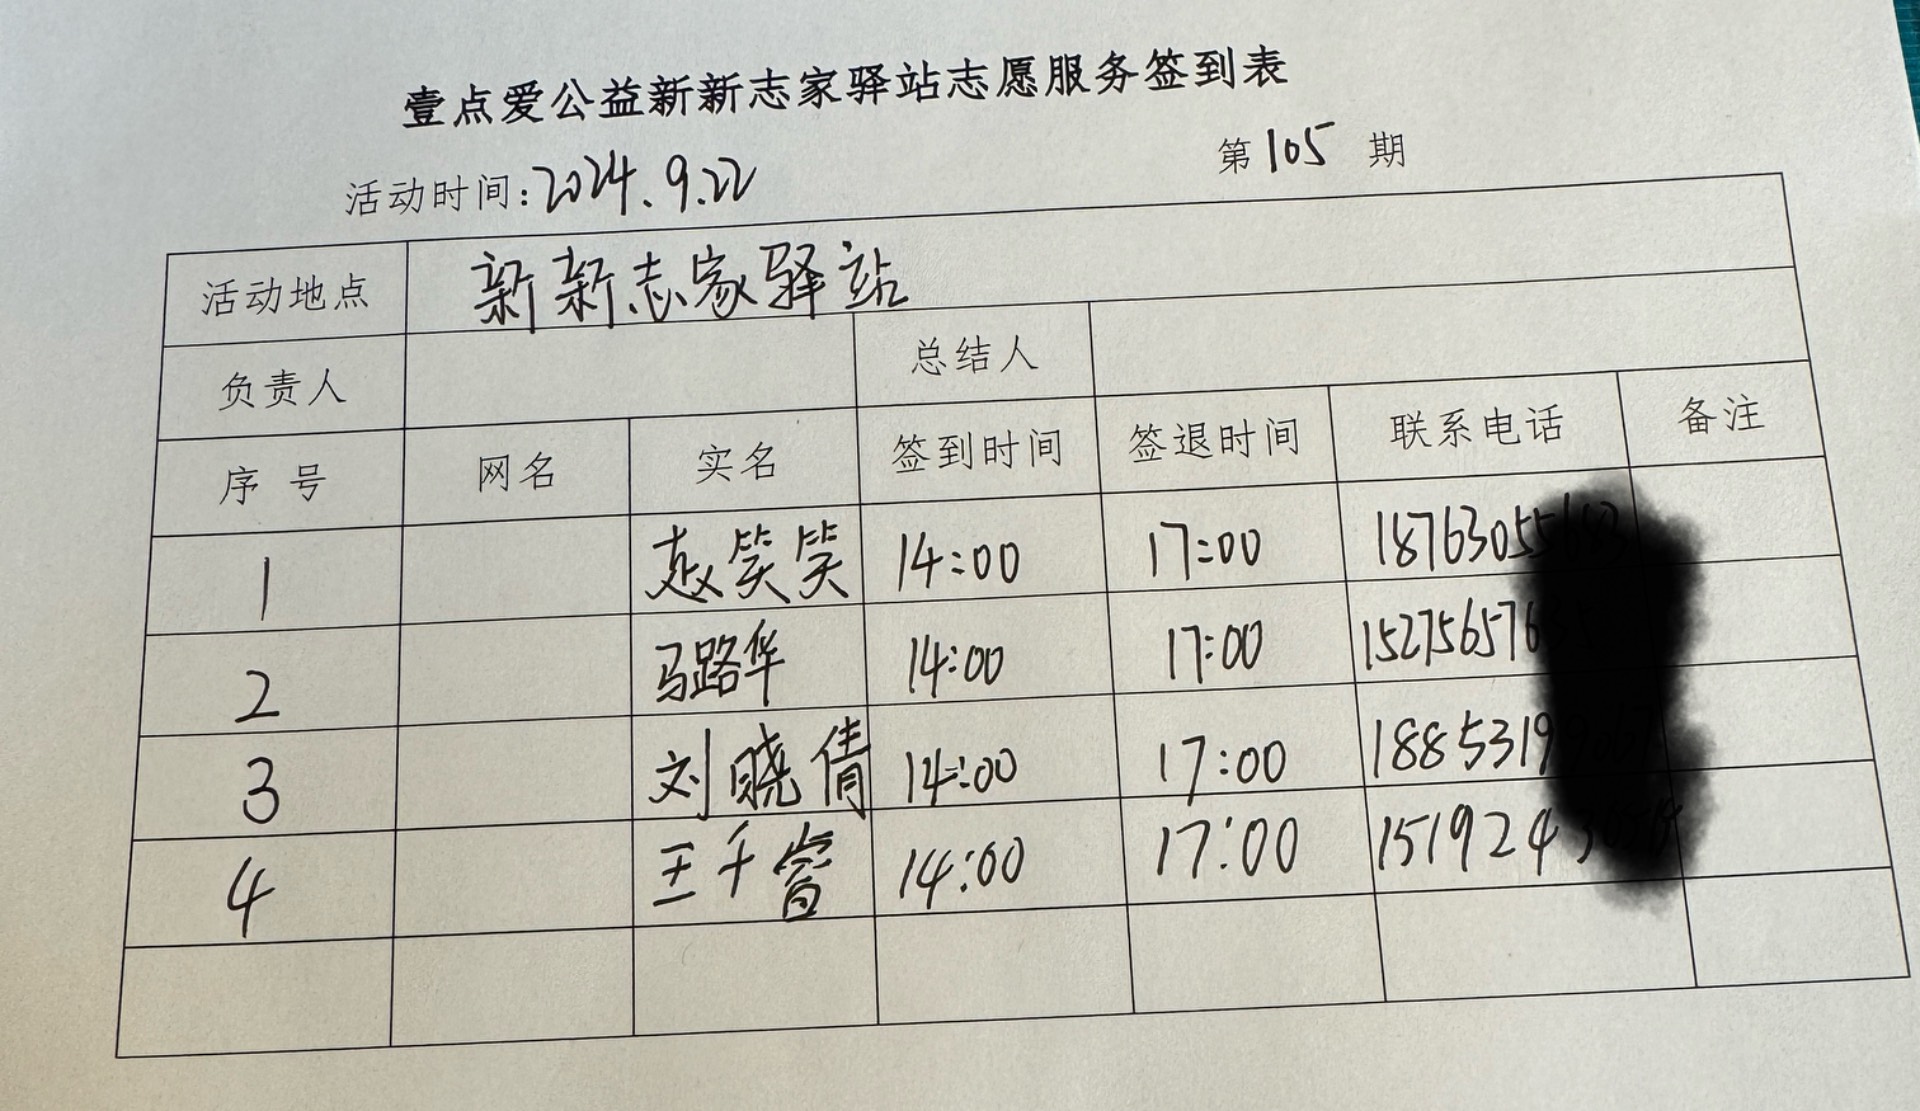 壹点爱公益新新志家驿站志愿服务签到表
活动时间:2024.9.22 第105期
活动地点 新新志家驿站
负责人 总结人
序号 网名 实名 签到时间 签退时间 联系电话 备注
1 赵笑笑 14:00 17:00 1876305
2 马路华 14:00 17:00 15275657
3 刘晓倩 14:00 17:00 1885319
4 王千睿 14:00 17:00 151924